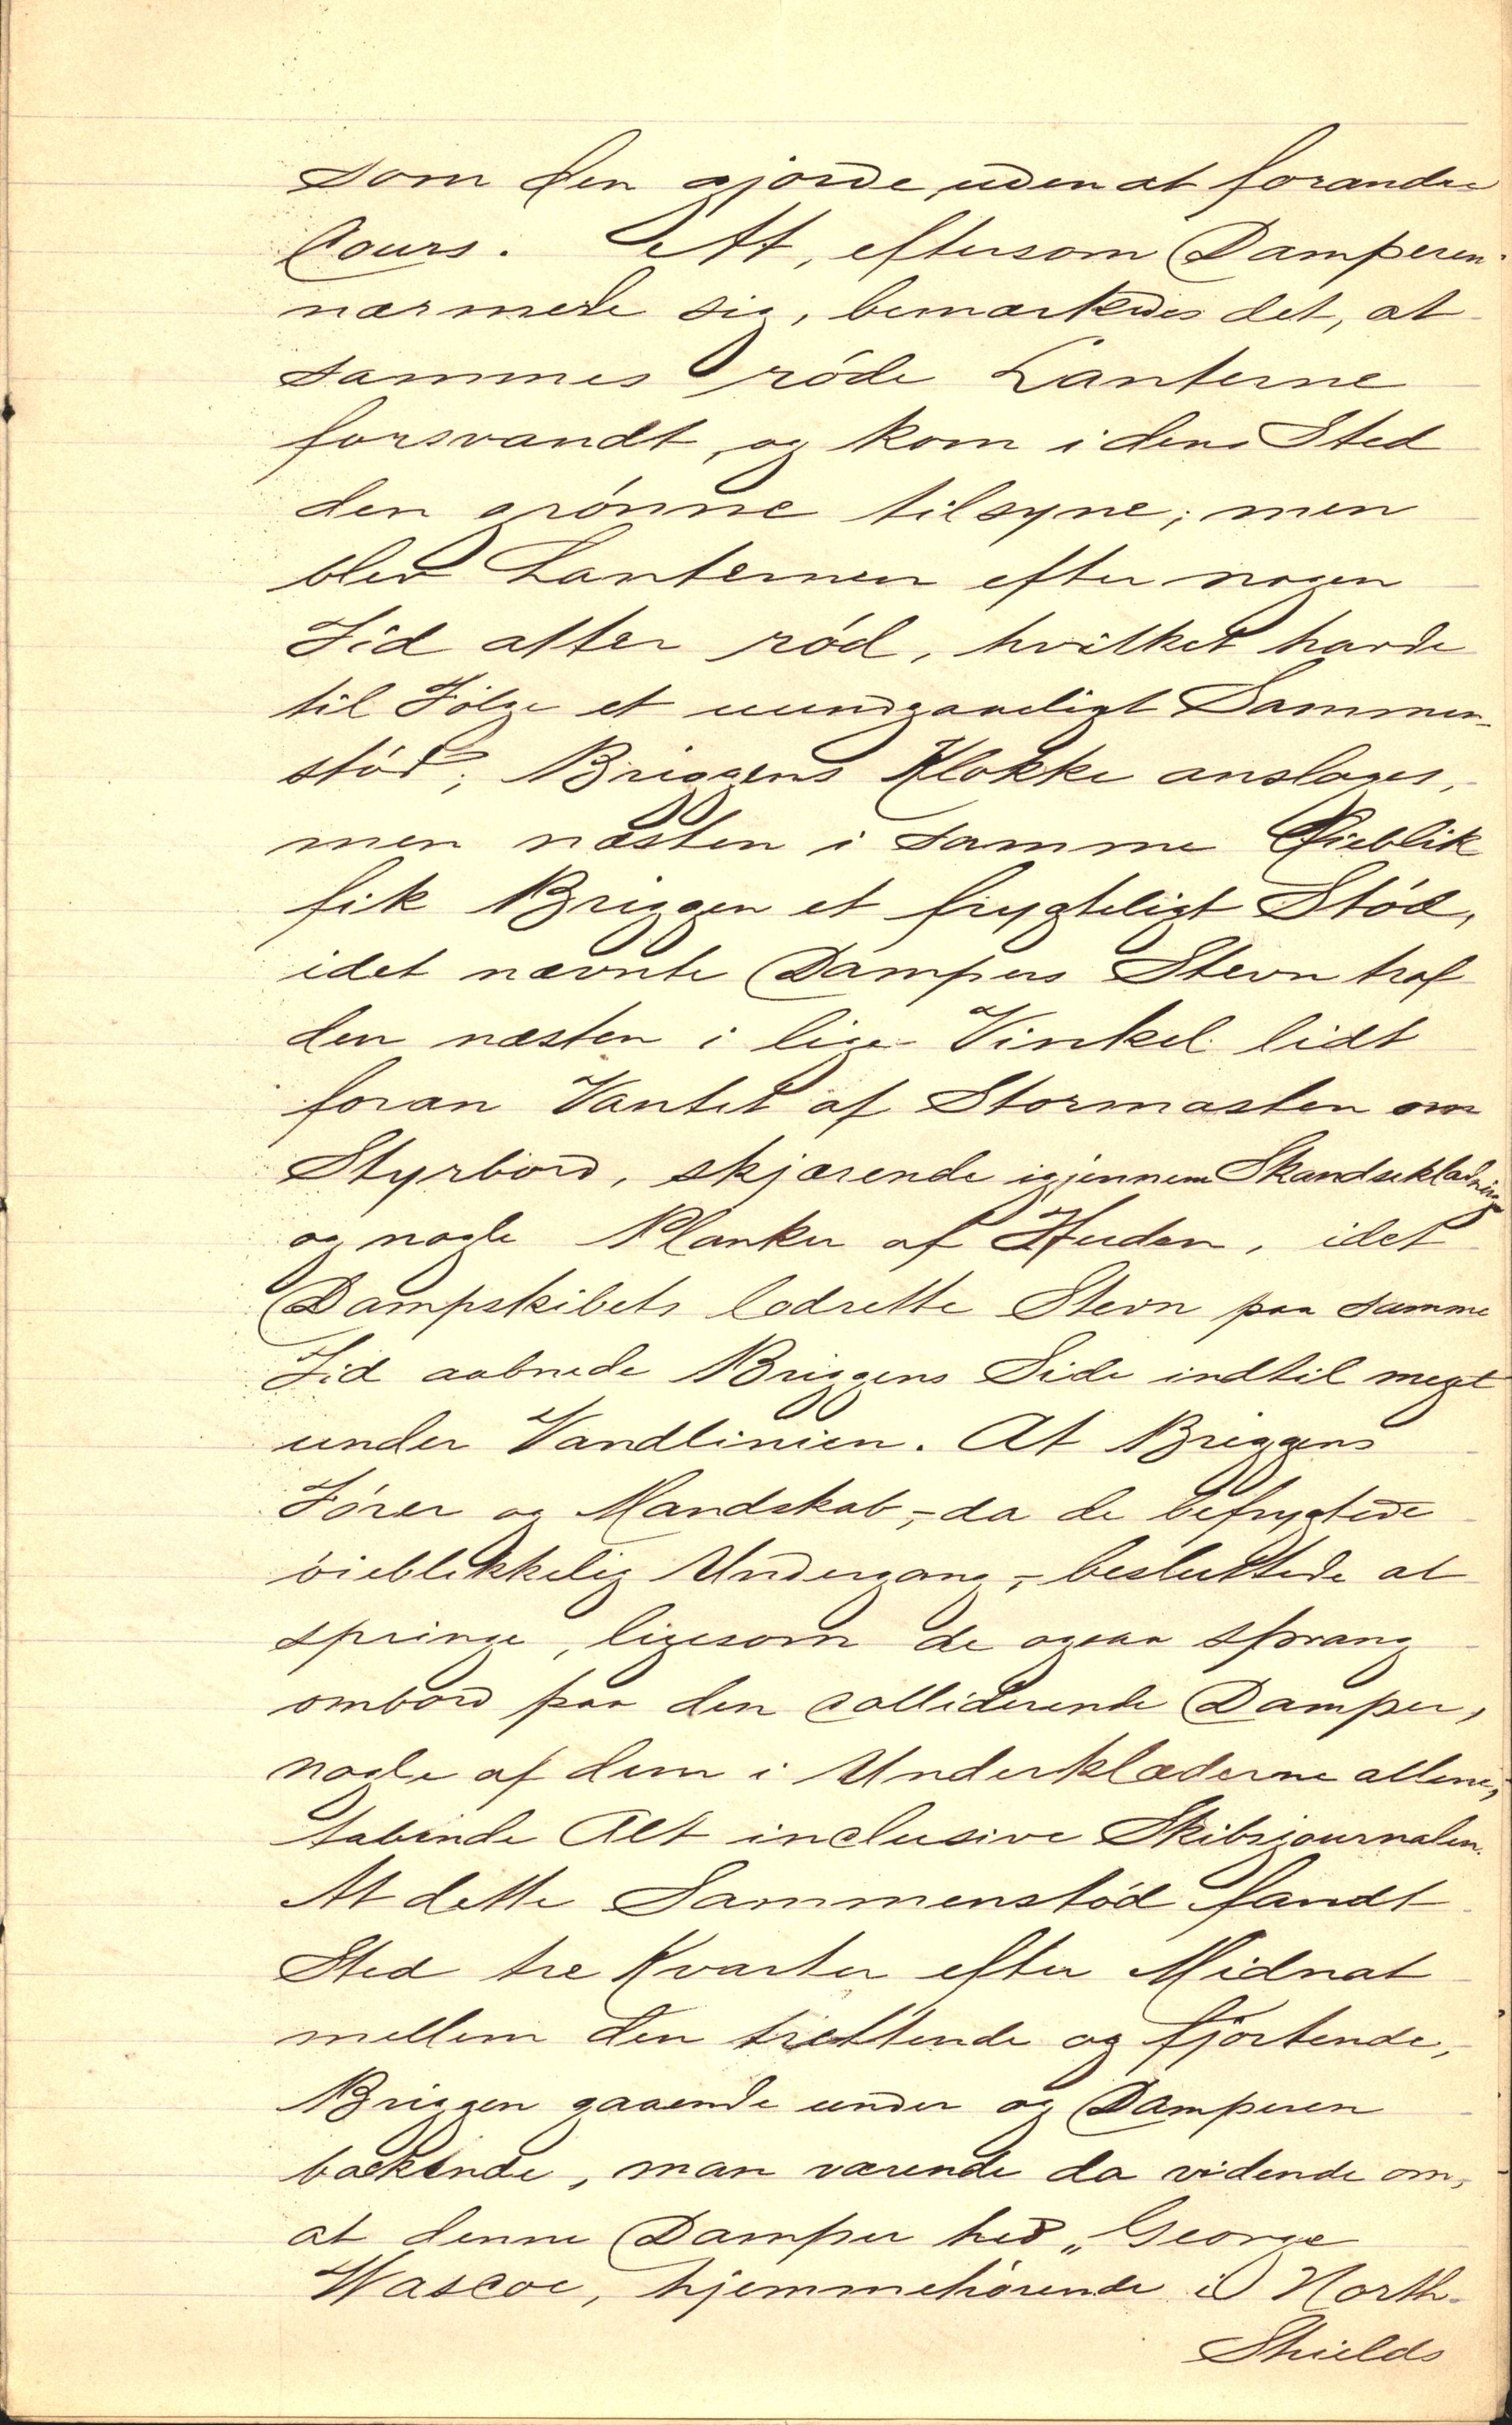 som den gjorde uden at forandre
Cours. At, eftersom Damperen
nærmede sig, bemærkedes det, at
sammes röde Lanterne
forsvandt, og kom i dens Sted
den grönne tilsyne; men
blev Lanternen efter nogen
Tid atter röd, hvilket havde
til Fölge et uundgaaeligt Sammen-
stöd; Briggens Klokke anslages,
men næsten i samme Öieblik
fik Briggen et frygteligt Stöd,
idet nævnte Dampers Stevn traf
den næsten i lige Vinkel lidt
foran Vantet af Stormasten om
Styrbord, skjærende igjennem Skandseklædning
og nogle Planker af Huden, idet
Dampskibets lodrette Stevn paa samme
Tid aabnede Briggens Side indtil megt
under Vandlinien. At Briggens
Förer og Mandskab,- da de befrygtede
öieblikkelig Undergang,- besluttede at
springe, ligesom de ogsaa sprang
ombord paa den colliderende Damper,
nogle af dem i Underklæderne allene,
tabende Alt inclusive Skibsjournalen.
At dette Sammenstöd fandt
Sted tre Kvarter efter Midnat
mellem den trettende og fjortende,
Briggen gaaende under og Damperen
backende, man værende da vidende om,
at denne Damper hed „George
Wascoe, hjemmehörende i North-
Shields